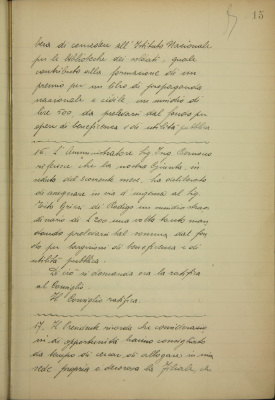 15
bera di concedere all'Istituto Nazionale
per le Biblioteche dei soldati, quale
contributo alla formazione di un
premio per un libro di propaganda
nazionale e civile un sussidio di
lire 200, da prelevarsi dal fondo per
opere di beneficenza e di utilità pubblica
16. L'Amministratore Sig.
riferisce che la nostra Giunta, in
seduta del corrente mese, ha deliberato
di assegnare in via d'urgenza al Sig.
Tito di Rovigo un sussidio straor
dinario di £ 200 una volta tanto man
dando prelevarsi tal somma dal fon
do per elargizioni di beneficenza e di
utilità pubblica.
Di ciò si domanda ora la ratifica
al Consiglio.
Il Consiglio ratifica.
17. Il Presidente ricorda che considerazio
ni di opportunità hanno consigliato
da tempo di cercar di allogare in una
sede propria e decorosa la Filiale di